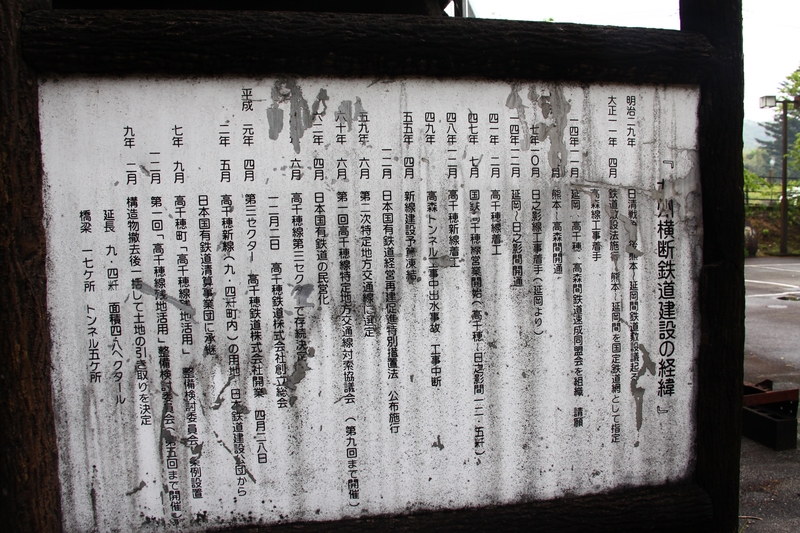 『九州横断鉄道建設の経緯』
明治二九年 日清戦 熊本～延岡間鉄道敷設議起る
大正一一年 四月 鉄道敷設法施行 熊本～延岡間を国定鉄道網として指定
高森線工事着手
一四年一一月 延岡 高千穂 高森間鉄道速成同盟会を組織 請願
月 熊本 高森間開通
七年一〇月 日之影線工事着手（延岡より）
一四年一二月 延岡～日之影間開通
四一年 二月 高千穂線着工
四七年 七月 国鉄『千穂線営業開始（高千穂～日之影間一二・五粁）
四八年一二月 高千穂新線着工
四九年 高森トンネル工事中出水事故 工事中断
五五年 四月 新線建設予算凍結
一二月 日本国有鉄道経営再建促進特別措置法 公布施行
五九年 六月 第二次特定地方交通線に選定
六十年 六月 第一回高千穂線特定地方交通線対策協議会（第九回まで開催）
六二年 四月 日本国有鉄道の民営化
六月 高千穂線第三セクターで存続決定
一二月二日 高千穂鉄道株式会社創立総会
平成 元年 四月 第三セクター 高千穂鉄道株式会社開業 四月二八日
二年 五月 高千穂新線（九・四粁町内）の用地 日本鉄道建設公団から
日本国有鉄道清算事業団に承継
七年 九月 高千穂町「高千穂線残地活用」整備検討委員会 条例設置
一二月 第一回「高千穂線残地活用」整備検討委員会（第五回まで開催）
九年 二月 構造物撤去後一括して土地の引き取りを決定
延長 九・四粁 面積四八ヘクタール
橋梁 一七ケ所 トンネル五ケ所